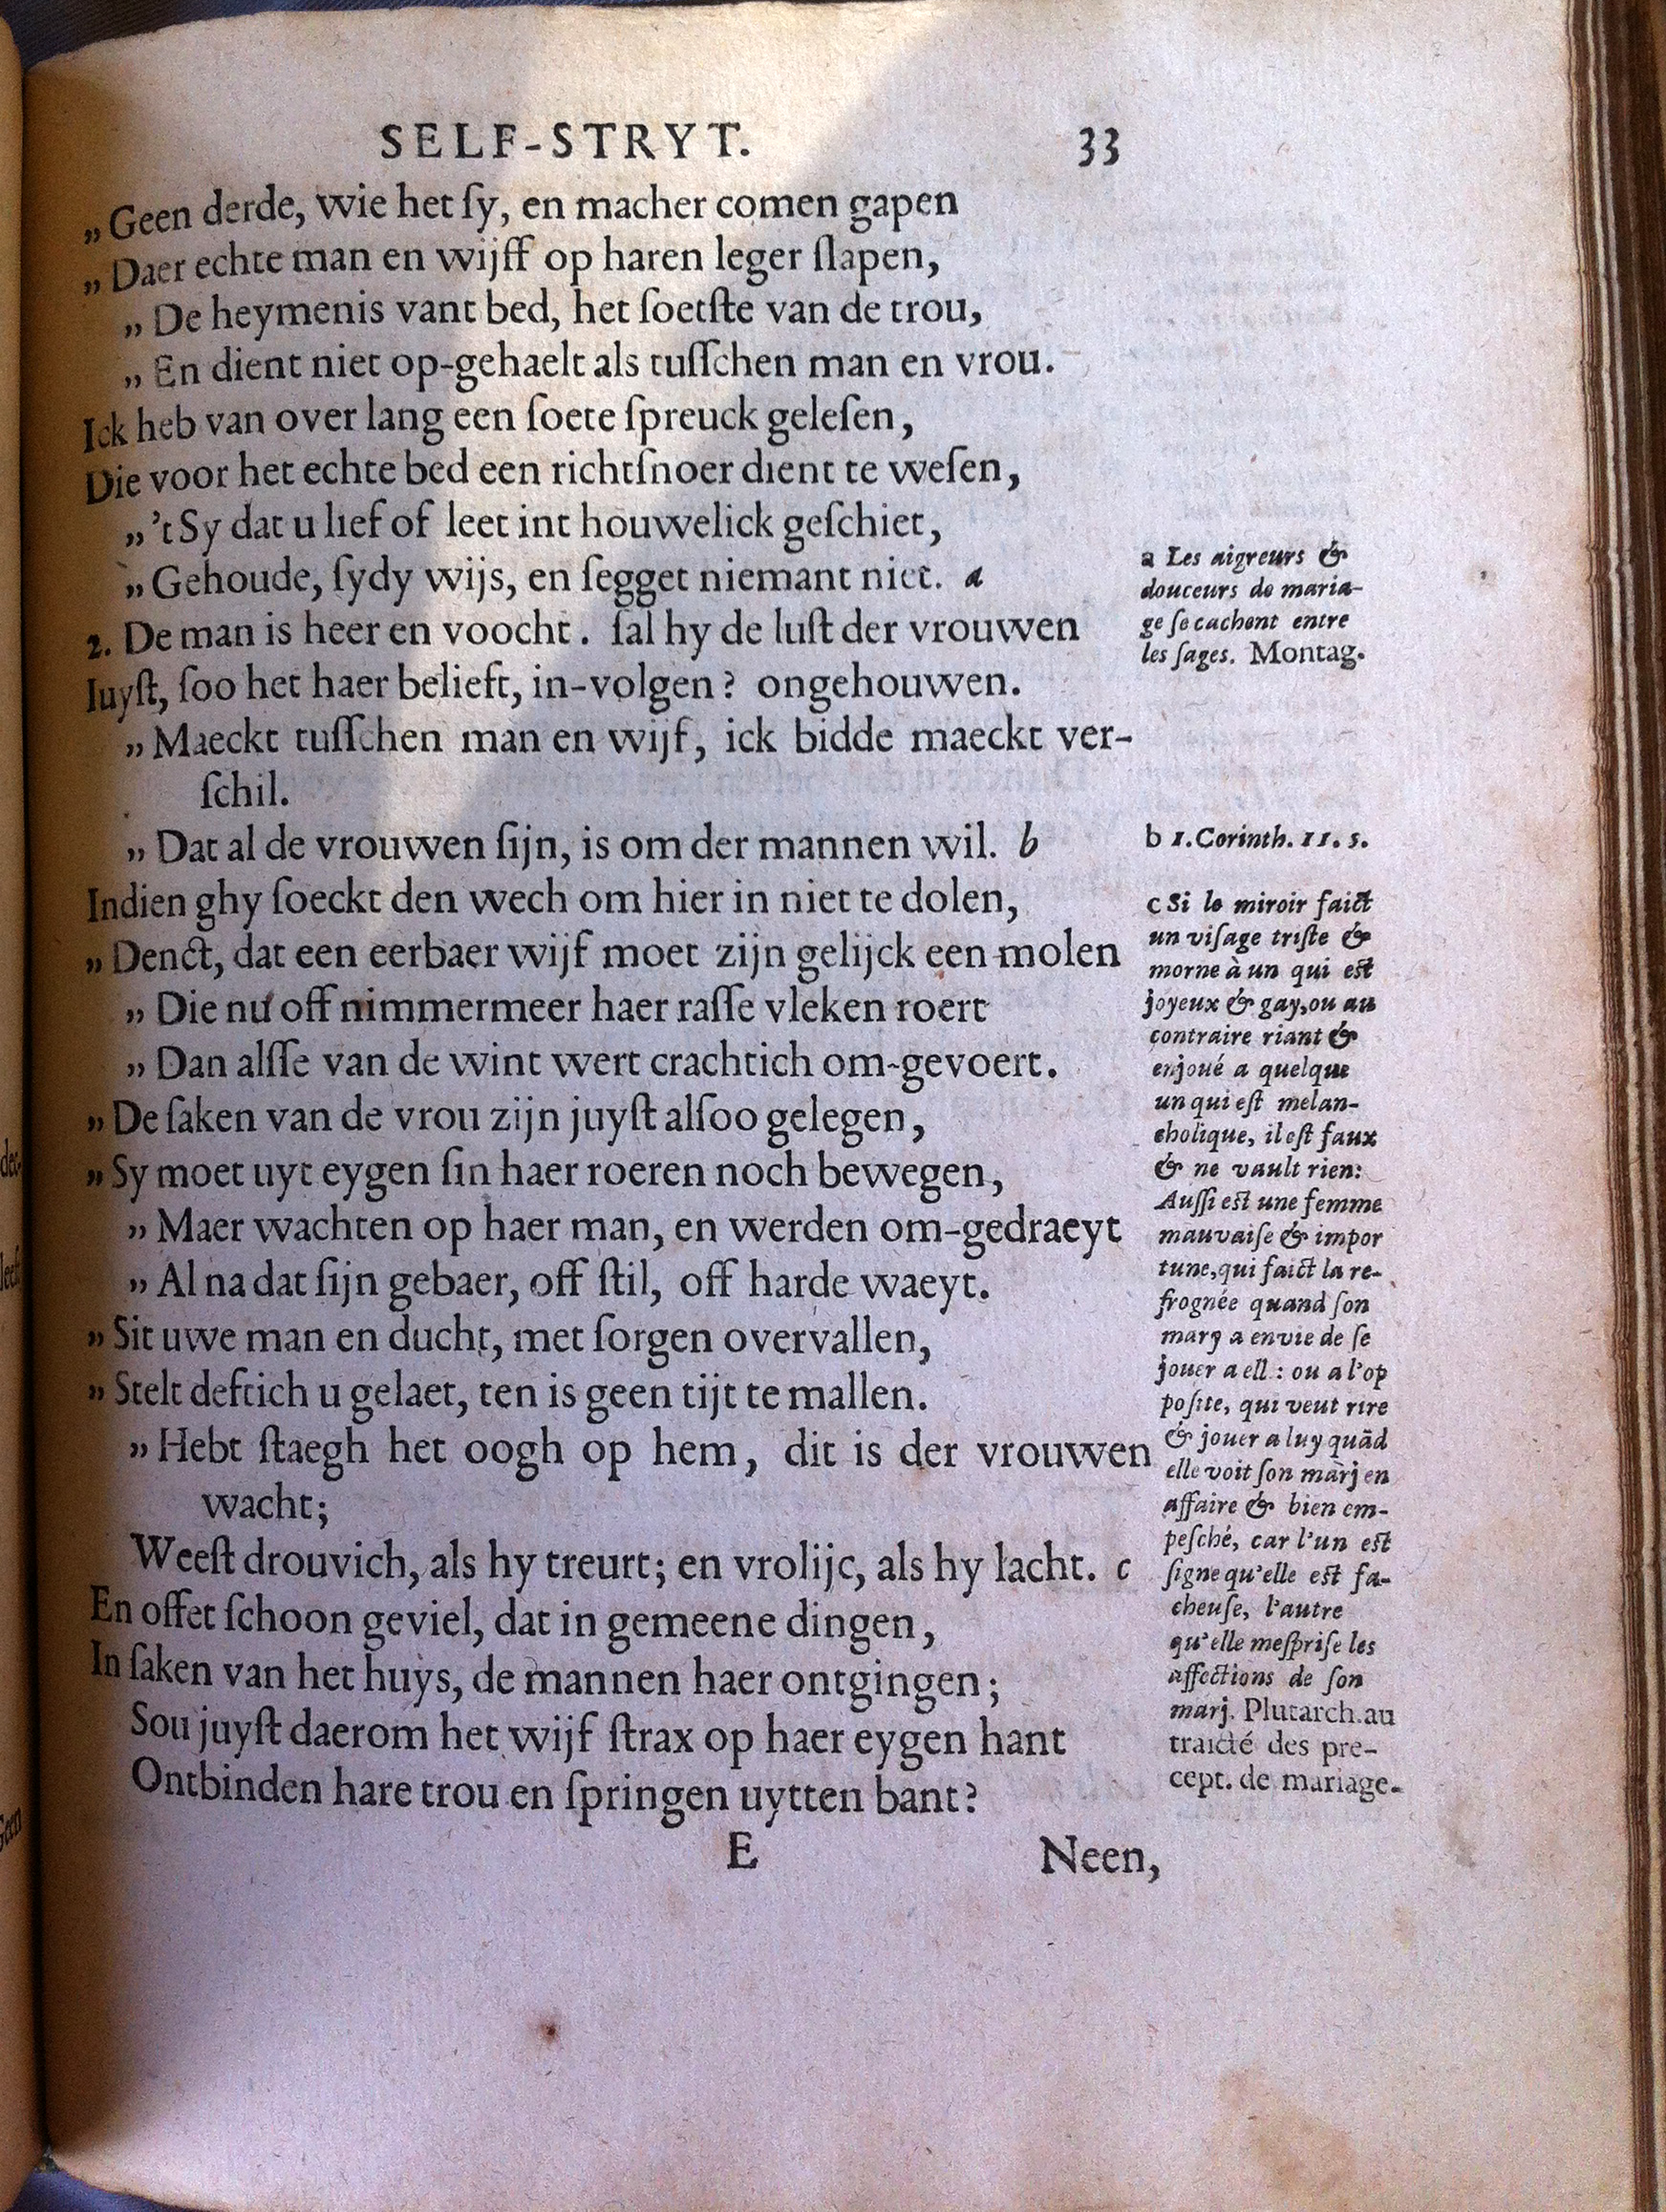 SELF-STRYT. 33
„Geen derde, wie het ſy, en macher comen gapen
„Daer echte man en wijff op haren leger ſlapen,
„De heymenis vant bed, het ſoetſte van de trou,
„En dient niet op-gehaelt als tuſſchen man en vrou.
Ick heb van over lang een ſoete ſpreuck geleſen,
Die voor het echte bed een richtſnoer dient te weſen,
„'t Sy dat u lief of leet int houwelick geſchiet,
„Gehoude, ſydy wijs, en ſegget niemant niet. a
2. De man is heer en voocht. ſal hy de luſt der vrouwen
Iuyſt, ſoo het haer belieft, in-volgen? ongehouwen.
„Maeckt tuſſchen man en wijf, ick bidde maeckt ver-
ſchil.
„Dat al de vrouwen ſijn, is om der mannen wil. b
Indien ghy ſoeckt den wech om hier in niet te dolen,
„Denct, dat een eerbaer wijf moet zijn gelijck een molen
„Die nu off nimmermeer haer raſſe vleken roert
„Dan alſſe van de wint wert crachtich om-gevoert.
„De ſaken van de vrou zijn juyſt alſoo gelegen,
„Sy moet uyt eygen ſin haer roeren noch bewegen,
„Maer wachten op haer man, en werden om-gedraeyt
„Al na dat ſijn gebaer, off ſtil, off harde waeyt.
„Sit uwe man en ducht, met ſorgen overvallen,
„Stelt deftich u gelaet, ten is geen tijt te mallen.
„Hebt ſtaegh het oogh op hem, dit is der vrouwen
wacht;
Weeſt drouvich, als hy treurt; en vrolijc, als hy lacht. c
En offet ſchoon geviel, dat in gemeene dingen,
In ſaken van het huys, de mannen haer ontgingen;
Sou juyſt daerom het wijf ſtrax op haer eygen hant
Ontbinden hare trou en ſpringen uytten bant?
E Neen,
a Les aigreurs &
douceurs de maria-
ge ſe cachent entre
les ſages. Montag.
b 1. Corinth. 11. 5.
c Si le miroir faict
un viſage triſte &
morne à un qui est
joyeux & gay, ou au
contraire riant &
enjoué a quelque
un qui eſt melan-
cholique, il eſt faux
& ne vault rien:
Auſſi est une femme
mauvaiſe & impor
tune, qui faict la re-
frognée quand ſon
mary a envie de ſe
jouer a ell : ou a l'op
poſite, qui veut rire
& jouer a luy quād
elle voit ſon marj en
affaire & bien em-
peſché, car l'un est
ſigne qu'elle est fa-
cheuſe, l'autre
qu'elle meſpriſe les
affections de ſon
marj. Plutarch. au
traicté des pre-
cept. de mariage.